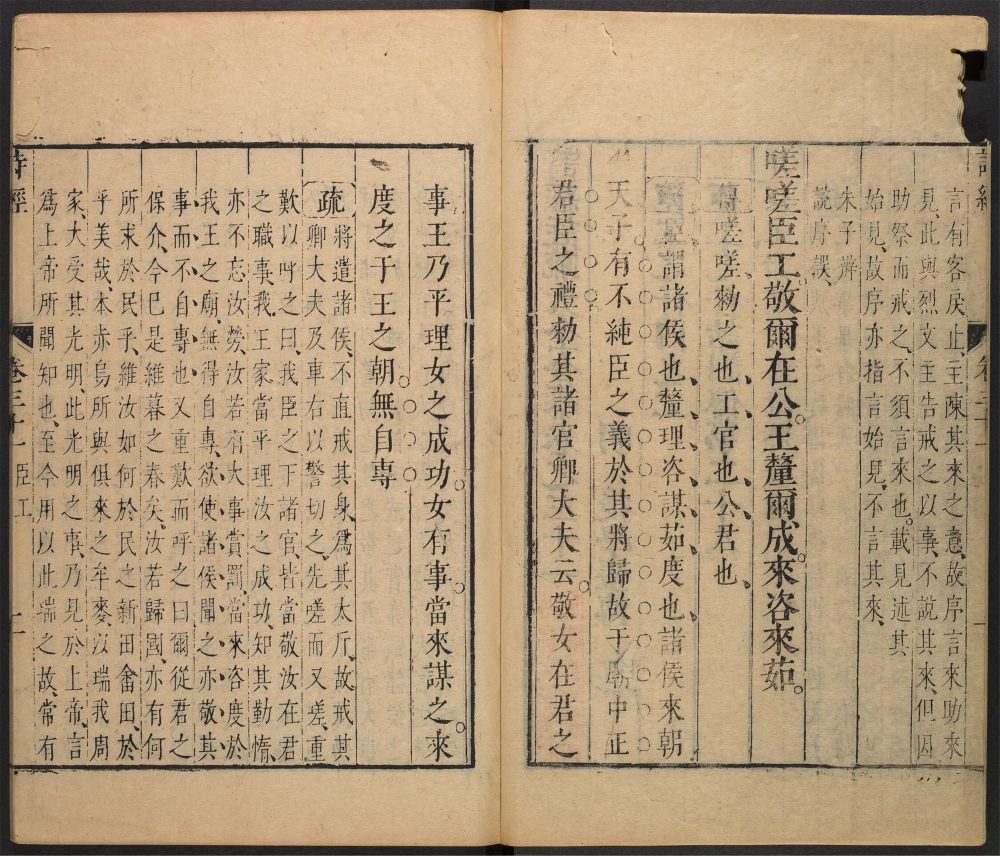 詩經
卷三十一
言有客戾止、主陳其來之意、故序言來助來
見、此與烈文主告戒之以事、不說其來、但因
助祭而戒之、不須言來也。載見述其
始見、故序亦指言始見、不言其來、
朱子辨
說序誤、
嗟嗟臣工。敬爾在公。王釐爾成。來咨來茹。
嗟嗟、勑之也、工官也、公君也、
謂諸侯也、釐、理、咨、謀、茹、度也、諸侯來朝
天子、有不純臣之義、於其將歸、故于廟中正
君臣之禮、勑其諸官卿大夫云、敬女在君之
事、王乃平理女之成功。女有事。當來謀之。來
度之于王之朝。無自專
疏將遣諸侯、不直戒其身、爲其太斥、故戒其
卿大夫及車右以警切之、先嗟而又嗟、重
歎以呼之曰、我臣之下諸官、皆當敬汝在君
之職事、我王家當平理汝之成功、知其勤惰、
亦不忘汝勞、汝若有大事賞罰、當來咨度於
我王之廟、無得自專、欲使諸侯聞之、亦敬其
事而不自專也、又重歎而呼之曰、爾從君之
保介、今巳是維暮之春矣、汝若歸國、亦有何
所求於民乎、維汝如何於民之新田畬田、於
乎美哉、本赤烏所與俱來之牟麥、以瑞我周
家、大受其光明、此光明之事、乃見於上帝、言
爲上帝所聞知也、至今用以此瑞之故、常有
詩經
卷三十一
臣工